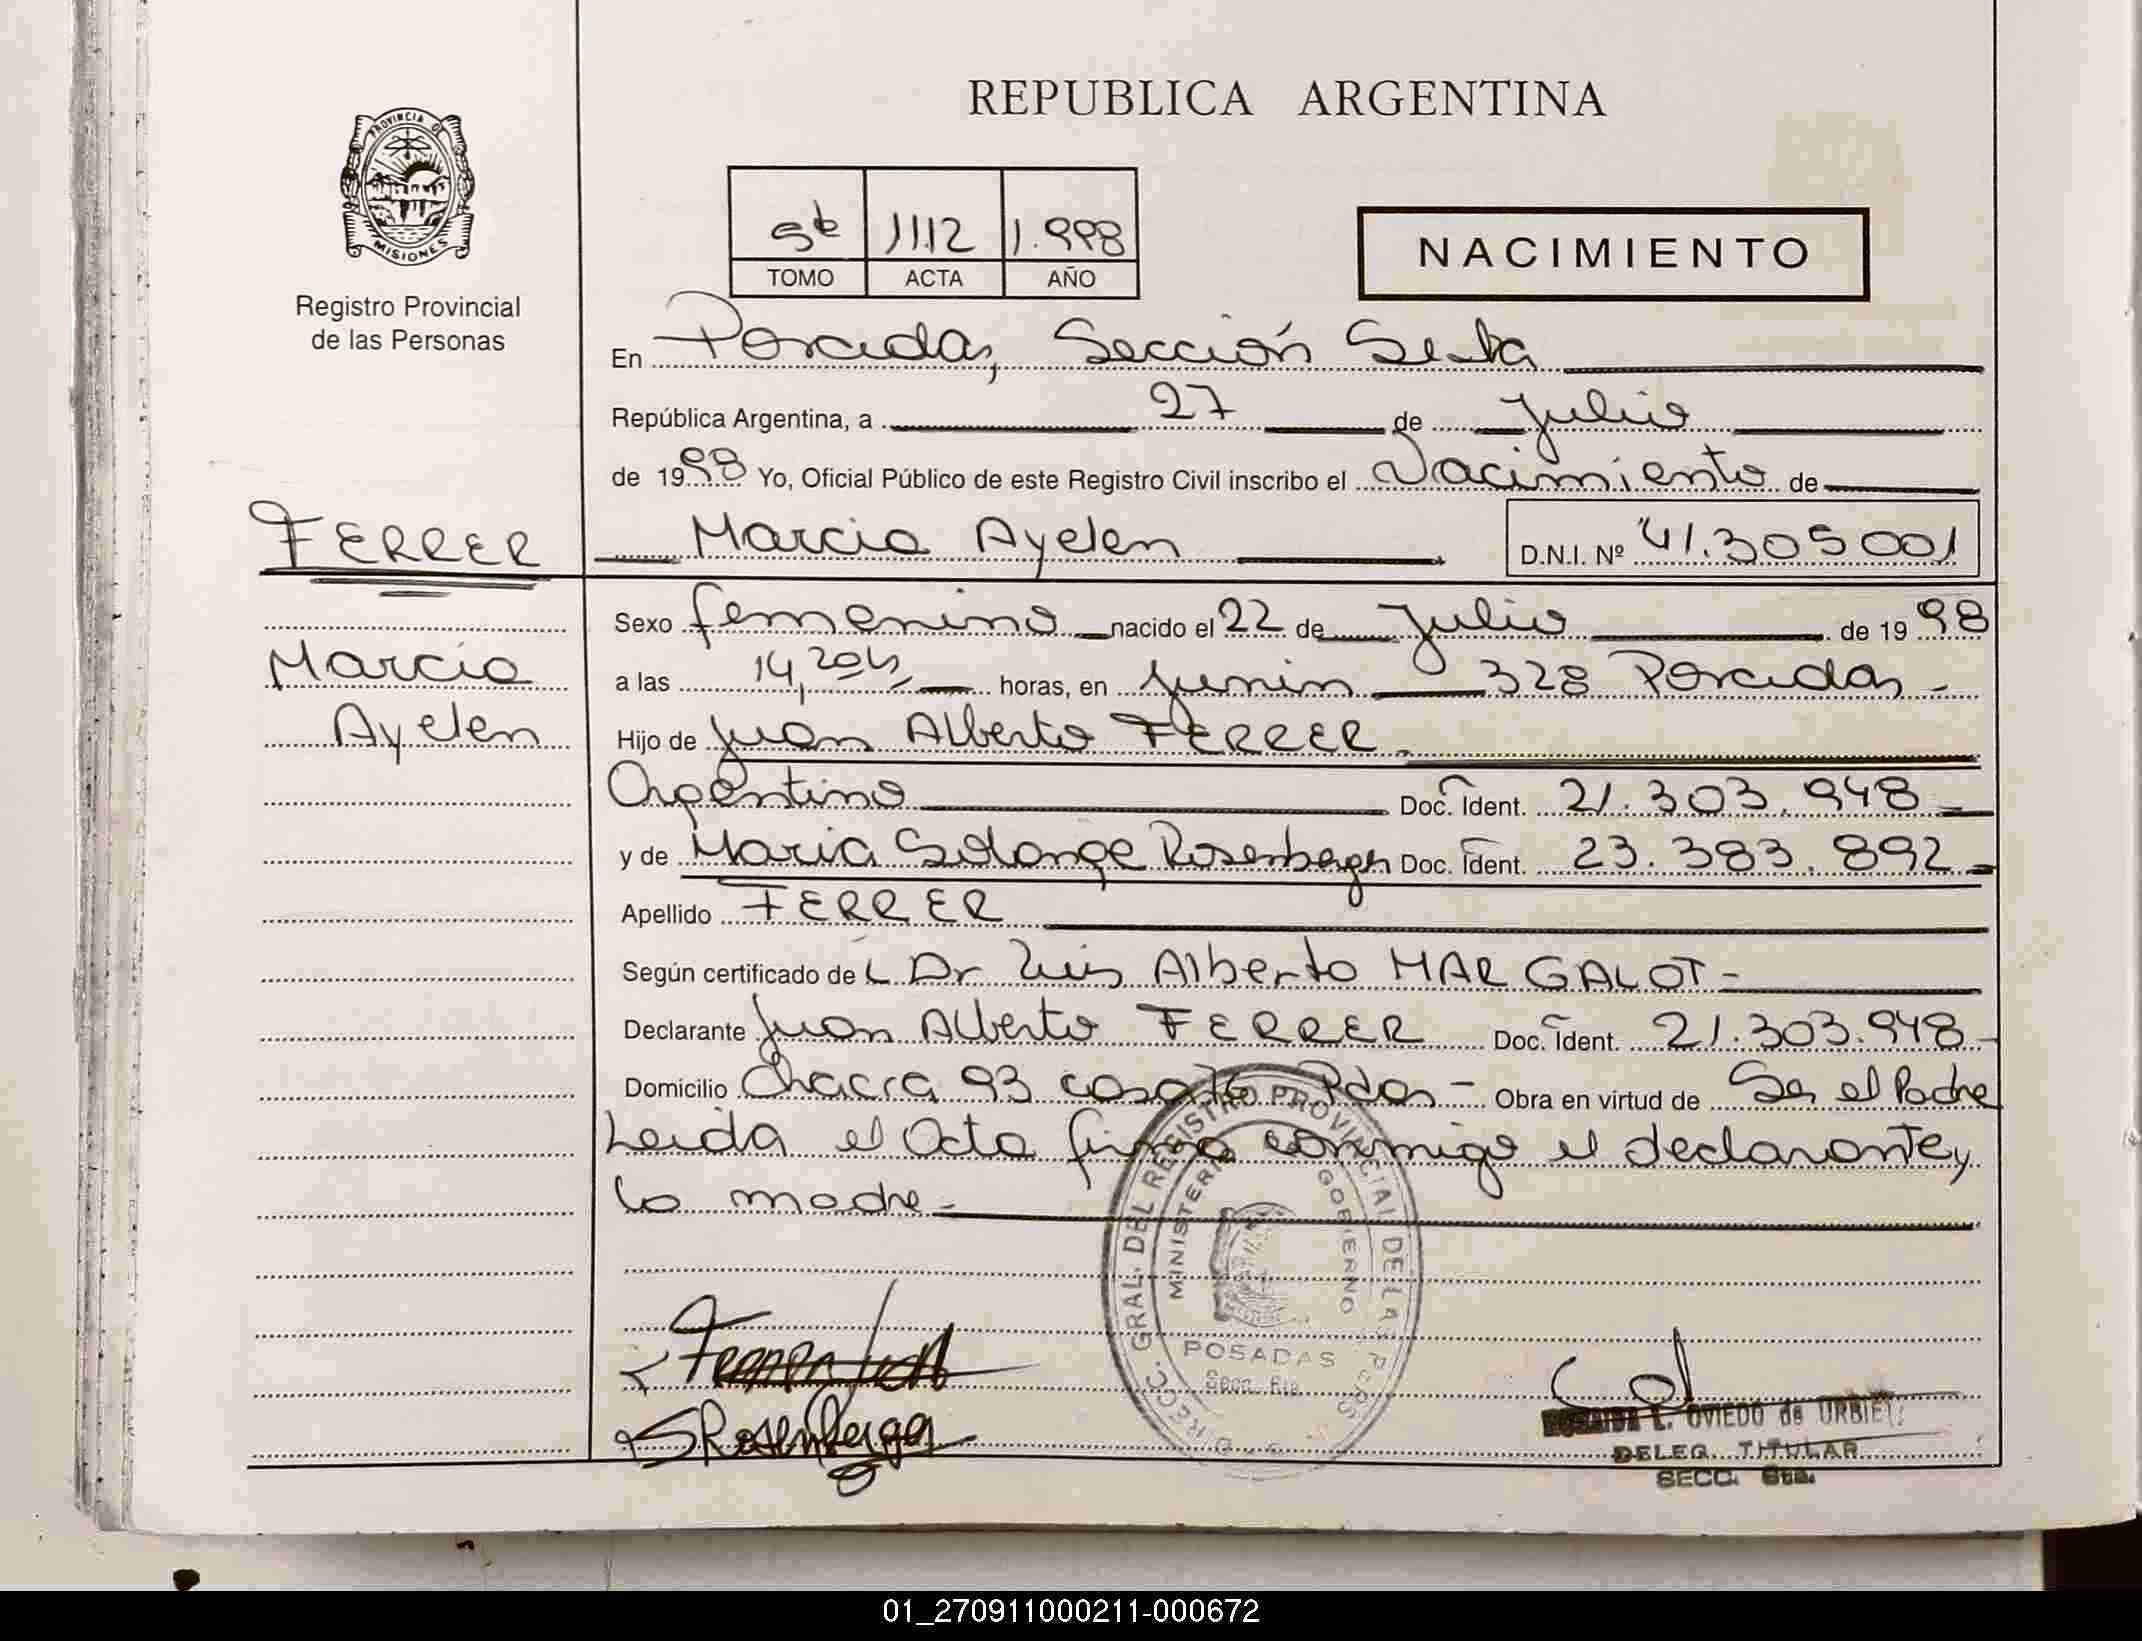 REPUBLICA ARGENTINA
PROVINCIA DE
MISIONES
Registro Provincial
de las Personas
5b 1112 1.998
TOMO ACTA AÑO
NACIMIENTO
En Posadas, Sección Sexta
República Argentina, a 27 de Julio
de 1998 Yo, Oficial Público de este Registro Civil inscribo el Nacimiento de
FERRER
Marcia Ayelen D.N.I. Nº 41.305001
Marcia
Ayelen
Sexo femenino nacido el 22 de Julio de 1998
a las 14,20hs, horas, en Junin 328 Posadas -
Hijo de Juan Alberto FERRER -
Argentino Doc. Ident. 21.303.948 -
y de Maria Solange Rosenberger Doc. Ident. 23.383.892 -
Apellido FERRER
Según certificado de L Dr Luis Alberto MARGALOT -
Declarante Juan Alberto FERRER Doc. Ident. 21.303.948 -
Domicilio Chacra 93 casa 76 - Pdas - Obra en virtud de Ser el Padre
Leida el Acta firma conmigo el declarante y
la madre -
DIRECC. GRAL. DEL REGISTRO PROVINCIAL DE LAS PERS
MINISTERIO GOBIERNO
POSADAS
Secc. 6ta
SRosenberger
L. OVIEDO de URBIET
DELEG. TITULAR
SECC. 6ta.
01_270911000211-000672